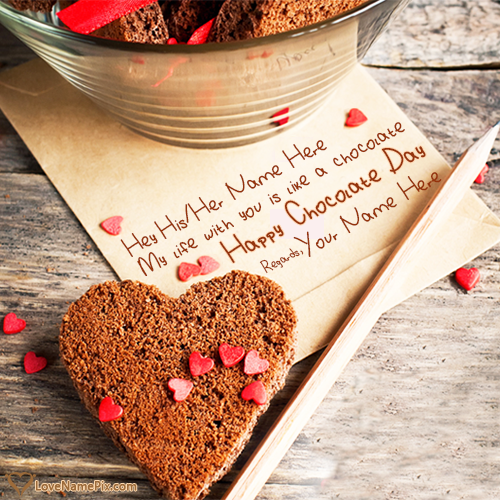 Hey His/Her Name Here
My life with you is like a chocolate
Happy Chocolate Day
Regards, Your Name Here
LoveNamePix.com